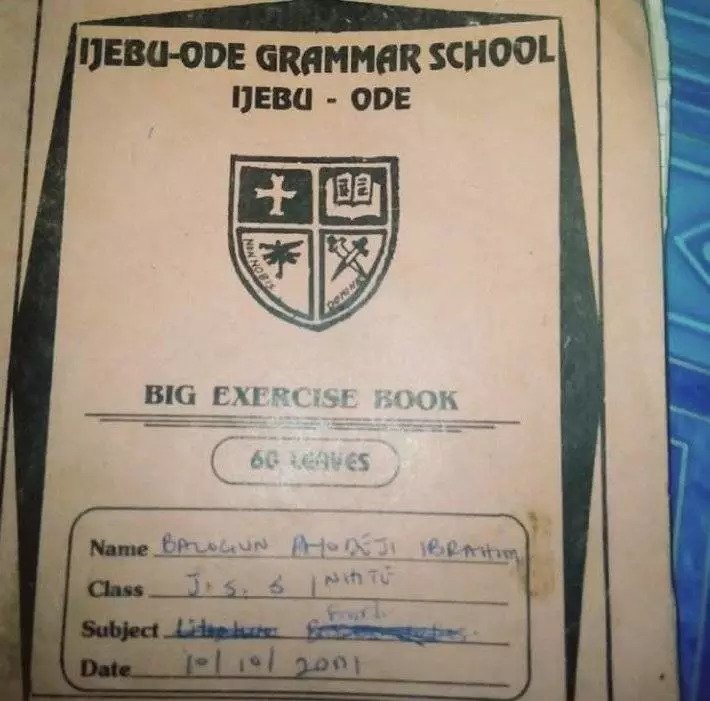 IJEBU-ODE GRAMMAR SCHOOL
IJEBU - ODE
NON NOBIS
DOMINE
BIG EXERCISE BOOK
60 LEAVES
Name BALOGUN AYODEJI IBRAHIM
Class J.S.S 1
Subject Literature
Date 10/10/2001